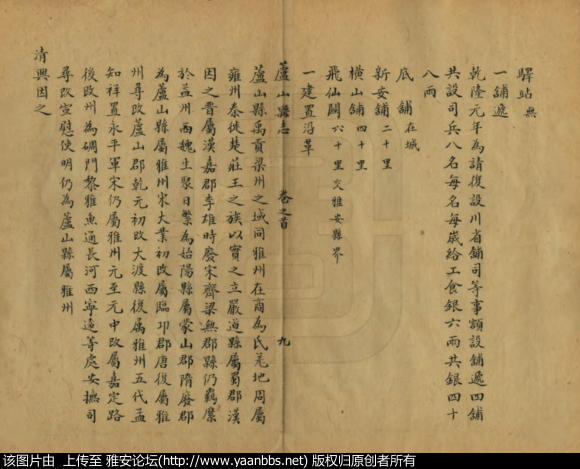 驛站無
一舖遞
乾隆元年為請復設川省舖司等事額設舖遞四舖
共設司兵八名每名每歲給工食銀六兩共銀四十
八兩
底舖在城
新安舖二十里
橫山舖四十里
飛仙關六十里交雅安縣界
一建置沿革
蘆山縣志 卷之首 九
蘆山縣禹貢梁州之域同雅州在商為氐羗地周屬
雍州秦徙楚莊王之族以實之立嚴道縣屬蜀郡漢
因之晉屬漢嘉郡李雄時廢宋齊梁無郡縣仍羈縻
於益州西魏生聚日繁為始陽縣屬蒙山郡隋廢郡
為盧山縣屬雅州宋大業初改屬臨邛郡唐復屬雅
州尋改盧山郡乾元初改大渡縣後属雅州五代孟
知祥置永平軍宋仍屬雅州元至元中改屬嘉定路
後改州為碉門黎雅魚通長河西寧遠等處安撫司
尋改宣慰使明仍為蘆山縣屬雅州
清興因之
该图片由 上传至 雅安论坛(http://www.yaanbbs.net) 版权归原创者所有